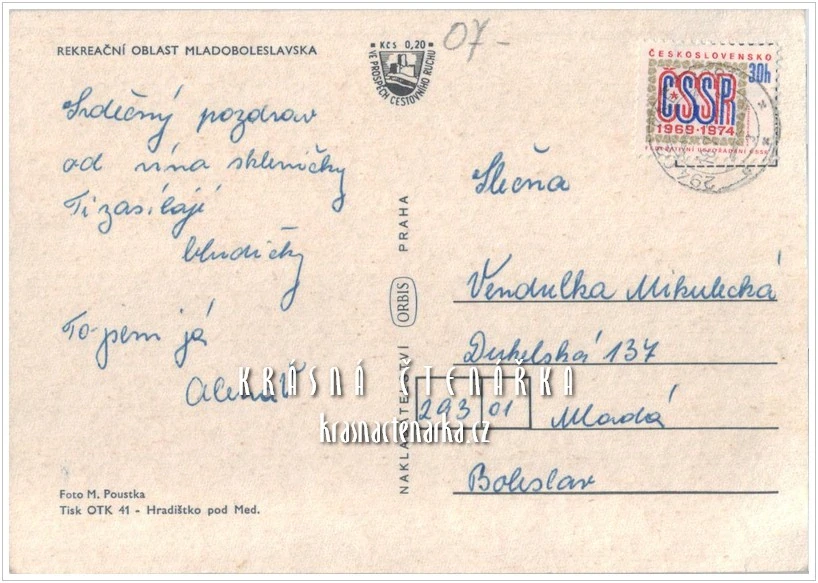 REKREAČNÍ OBLAST MLADOBOLESLAVSKA
Kčs 0,20
VE PROSPĚCH CESTOVNÍHO RUCHU
07-
ČESKOSLOVENSKO
30h
ČSSR
1969-1974
294
Srdečný pozdrav
od vína skleničky
Ti zasílají
Pem já
Alena V
Slečna
Vendulka Mikulecká
Dukelská 137
293 01 Mladá
Boleslav
NAKLADATELSTVÍ ORBIS PRAHA
KRÁSNÁ ČTENÁŘKA
krasnactenarka.cz
Foto M. Poustka
Tisk OTK 41 - Hradištko pod Med.